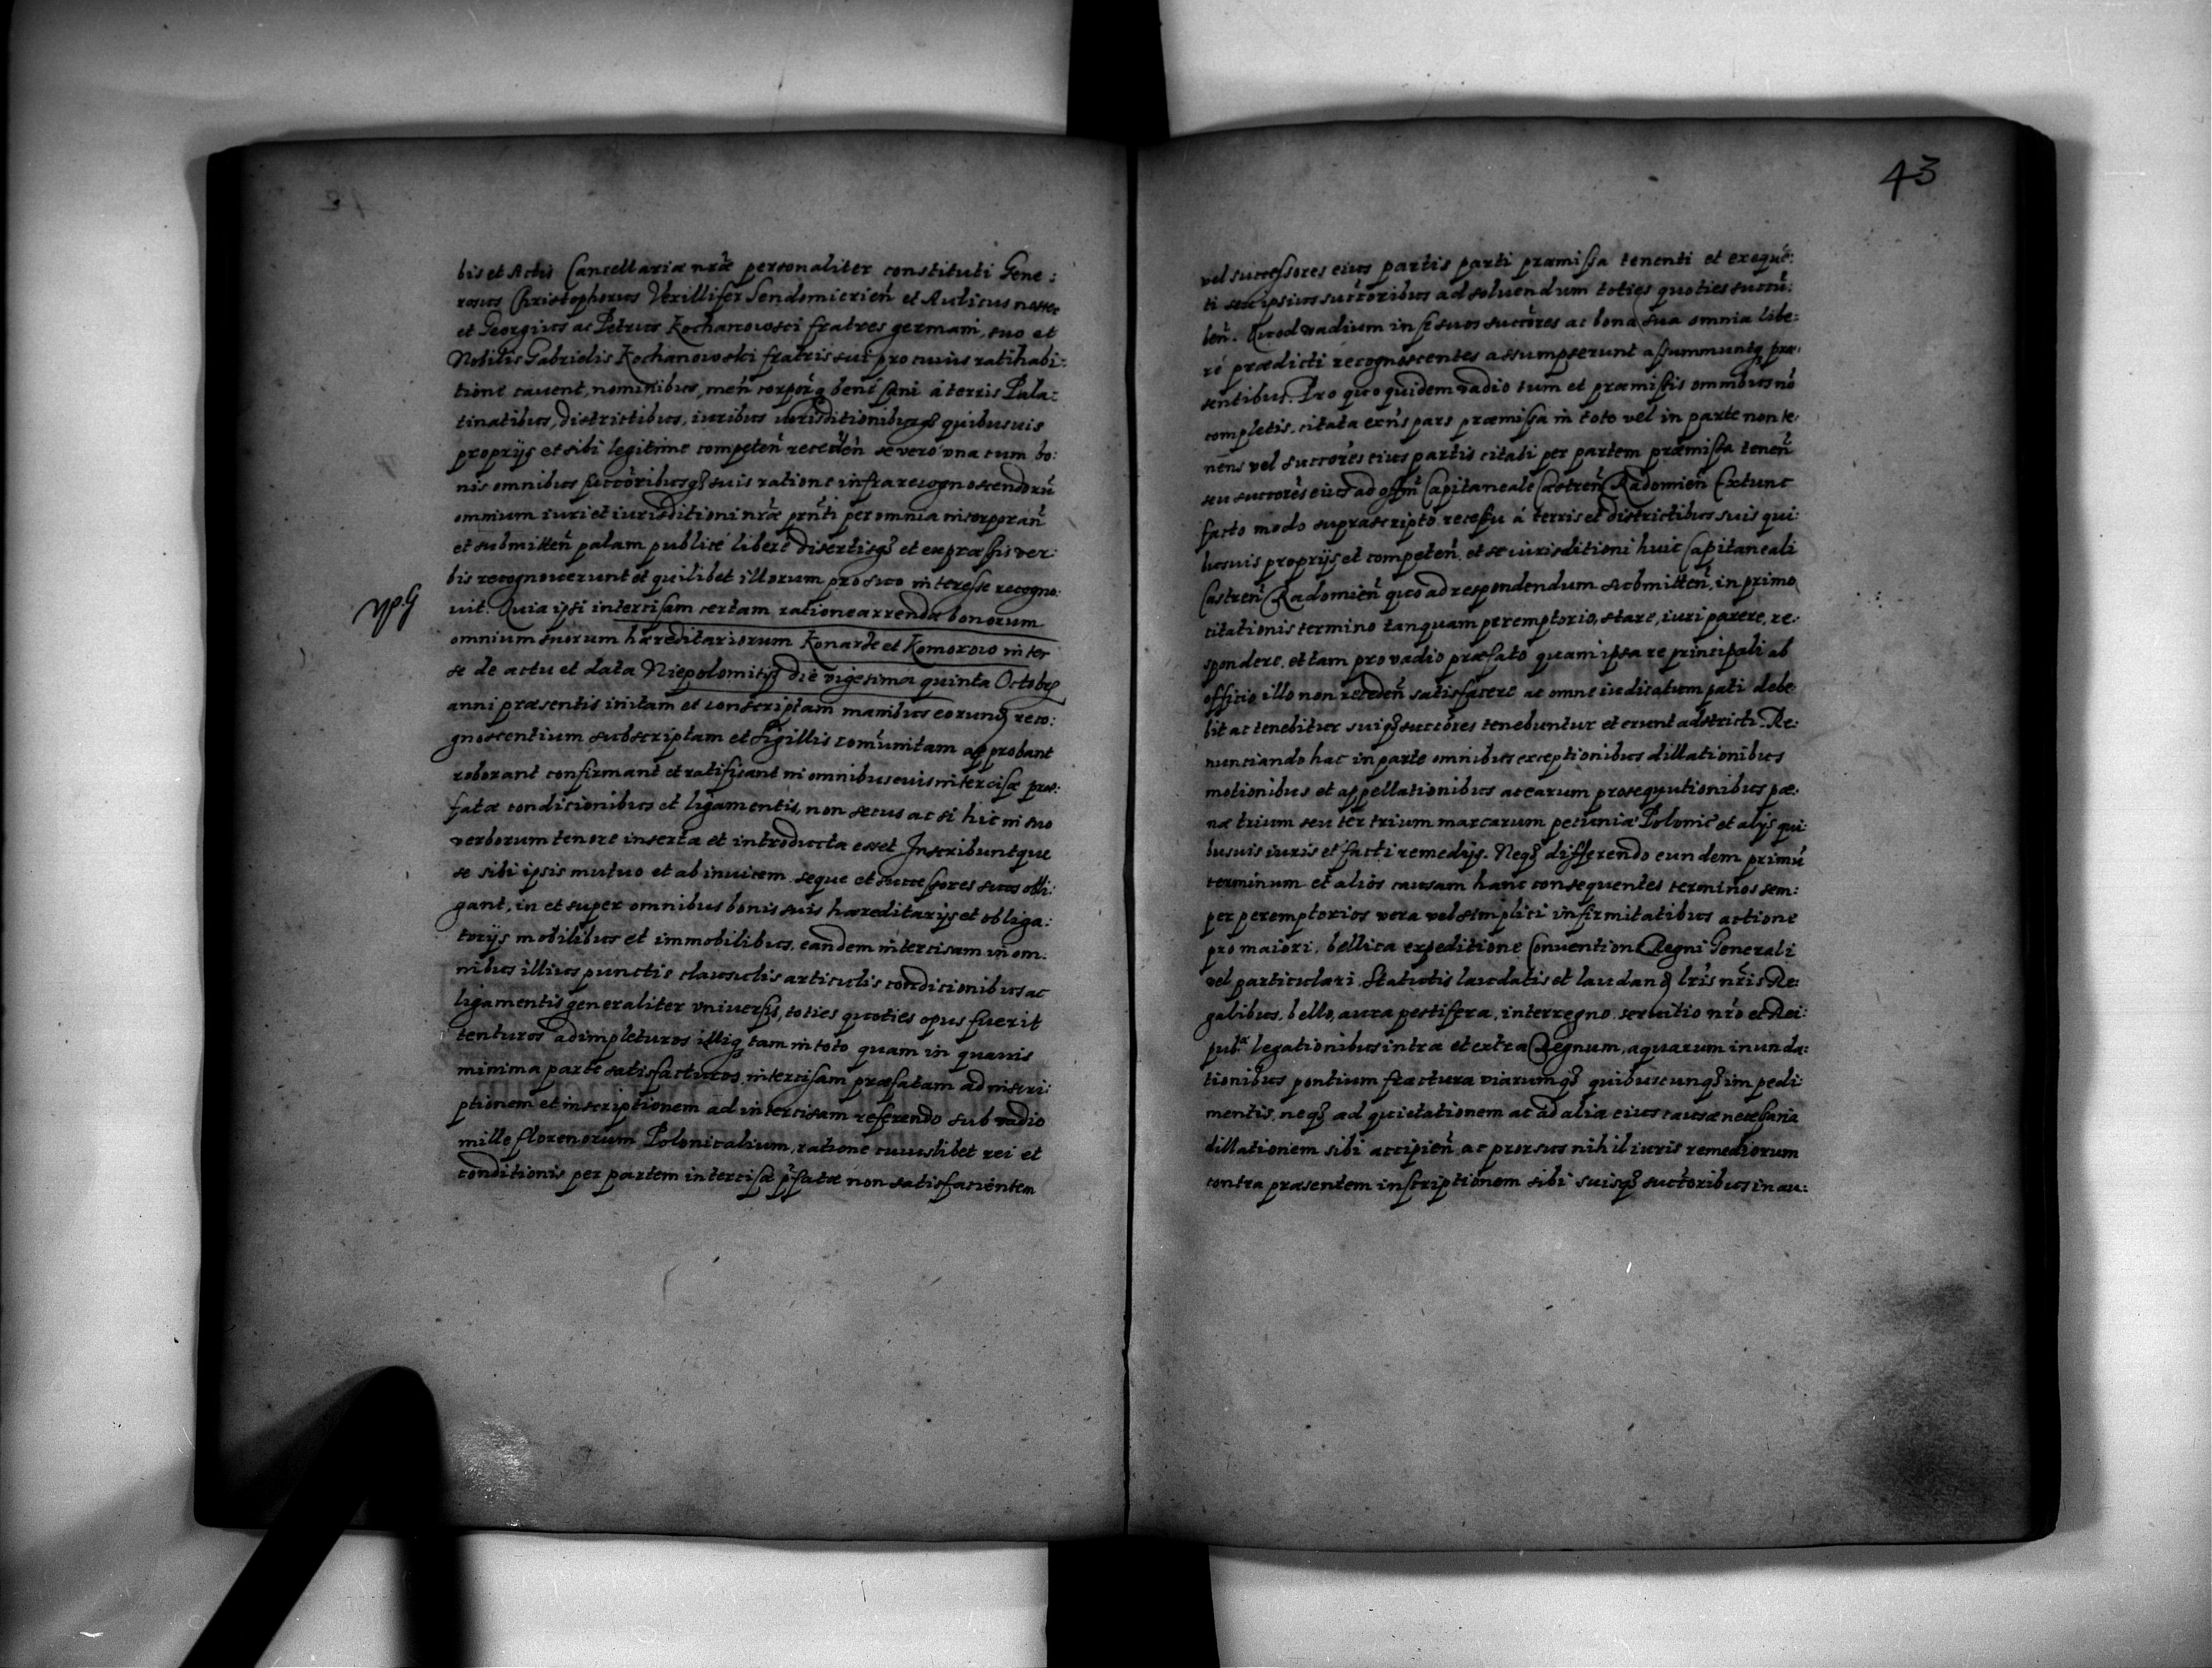 bis et Actis Cancellariæ nræ personaliter constituti Gene:
rosus Christophorus Vexillifer Sendomirien̄ et Aulicus noster
et Georgius ac Petrus Kochanowsci fratres germani, suo et
Nobilis Gabrielis Kochanowski fratris sui pro cuius ratihabi:
tione cavent, nominibus, men̄ corporq̃ bene sani á terris Pala:
tinatibus, districtibus, iuribus iurisditionibusq̃ quibusuis
proprijs et sibi legitime competen̄ receden̄ se vero vna cum bo:
nis omnibus succoribusq̃ suis ratione infra recognoscendorū
omnium iuri et iurisditioni nræ prn̄ti per omnia incorporan̄
et submitten̄ palam publicé liberé disertisq̃ et expræssis ver:
bis recognouerunt et quilibet illorum pro suo interesse recogno:
uit. Quia ipsi intercisam certam ratione arrendæ bonorum
NP.G
omnium suorum hæreditariorum Konarże et Komorowo inter
se de actu et data Niepolomitijs die vigesima quinta Octobrs
anni præsentis initam et conscriptam manibus eorunq̃ reco:
gnoscentium subscriptam et sigillis comūnitam approbant
roborant confirmant et ratifisant in omnibus suis intercisæ præ:
fatæ condicionibus et ligamentis, non secus ac si hic in suo
verborum tenore inserta et introducta esset Inscribuntque
se sibi ipsis mutuo et ab inuicem seque et successores suos obli:
gant, in et super omnibus bonis suis hæreditarijs et obliga:
torijs mobilibus et immobilibus, eandem intercisam in om:
nibus illius punctis clausulis articulis condicionibus ac
ligamentis generaliter vniuersis, toties quoties opus fuerit
tenturos adimpleturos illiq̃ tam in toto quam in quauis
minima parte satisfacturos intercisam præfatam ad inscri:
ptionem et inscriptionem ad intercisam referendo sub vadio
mille florenorum Polonicalium, ratione cuiuslibet rei et
conditionis per partem intercisæ p̄fatæ non satisfacientem
43
vel successores eius partis parti præmissa tenenti et exequē:
ti seu ipsius succoribus ad soluendum toties quoties succū:
ben̄. Quod vadium in se suos succores ac bona sua omnia libe:
ré prædicti recognoscentes assumpserunt assummuntq̃ præ:
sentibus. Pro quo quidem vadio tum et præmissis omnibus nō
completis, citata exn̄s pars præmissa in toto vel in parte non te:
nens vel succores eius partis citati per partem præmissa tenen̄
seu succores eius ad offm̄ Capitaneale Castren̄ Radomien̄ Extunc
facto modo suprascripto recessu á terris et districtibus suis qui:
busuis proprijs et competen̄. et se iurisditioni huic Capitaneali
Castren̄ Radomien̄ quo ad respondendum submitten̄. in primo
citationis termino tanquam peremptorio, stare, iuri parere, re:
spondere, et tam pro vadio præfato quam ipsa re principali ab
officio illo non receden̄ satisfacere ac omne iudicatum pati debe:
bit ac tenebitur suiq̃ succores tenebuntur et erunt adstricti. Re:
nunciando hac in parte omnibus exceptionibus dillationibus
motionibus et appellationibus ac earum prosequutionibus pæ:
næ trium seu ter trium marcarum pecuniæ Polonic̄ et alijs qui:
busuis iuris et facti remedijs. Neq̃ differendo eundem primū
terminum et aliós causam hanc consequentes terminos sem:
per peremptorios vera vel simplici infirmitatibus actione
pro maiori, bellica expeditione Conventione Regni Generali
vel particulari. Statutis laudatis et laudan̄ l̄ris nr̄is Re:
galibus, bello, aura pestifera, interregno, seruitio nr̄o et Rei:
pub.ᵃ legationibus intra et extra Regnum, aquarum inunda:
tionibus pontium fractura viarumq̃ quibuscunq̃ impedi:
mentis, neq̃ ad quietationem ac ad alia eius causæ necessaria
dillationem sibi accipien̄ ac prorsus nihil iuris remediorum
contra præsentem inscriptionem sibi suisq̃ succoribus in au: